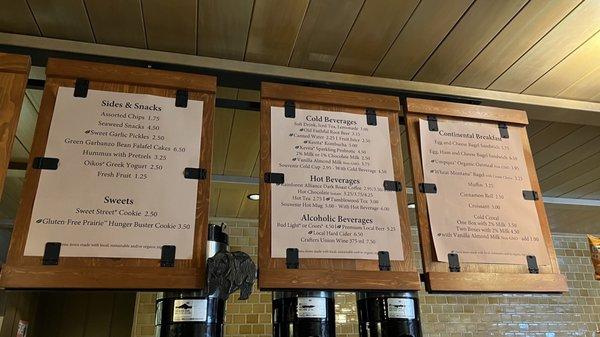 Sides & Snacks
Assorted Chips 1.75
Seaweed Snacks 4.50
Sweet Garlic Pickles 2.50
Green Garbanzo Bean Falafel Cakes 6.50
Hummus with Pretzels 3.25
Oikos® Greek Yogurt 2.50
Fresh Fruit 1.25
Sweets
Sweet Street® Cookie 2.50
Gluten-Free Prairie® Hunger Buster Cookie 3.50
Items made with local, sustainable and/or organic
Cold Beverages
Soft Drink, Iced Tea, Lemonade
Old Faithful Root Beer 3.25
Canned Water 2.25 Fruit Juice
Kevita® Kombucha
Kevita® Sparkling Probiotic 4.50
2% Milk or 1% Chocolate Milk 2.50
Vanilla Almond Milk 2.50
Souvenir Cold Cup 2.95 - With Cold Beverage 4.25
Hot Beverages
Rainforest Alliance Dark Roast Coffee 2.95/3.50
Hot Chocolate 3.25/3.75
Hot Tea 2.75 Tumblewood Tea 3.00
Souvenir Hot Mug - With Hot Beverage 6.00
Alcoholic Beverages
Bud Light® or Coors® 4.50 Premium Local Beer 5.25
Local Hard Cider 6.50
Crafters Union Wine 375 ml 7.50
Items made with local, sustainable and/or organic
Continental Breakfast
Egg and Cheese Bagel 6.25
Egg, Ham and Cheese Bagel 6.50
Umpqua® Organic Oatmeal
Wheat Montana® Bagel with Cream Cheese
Muffin 3.25
Cinnamon Roll
Croissant 3.00
Cold Cereal
One Box with 2% Milk 3.50
Two Boxes with 2% Milk
with Vanilla Almond Milk add 1.00